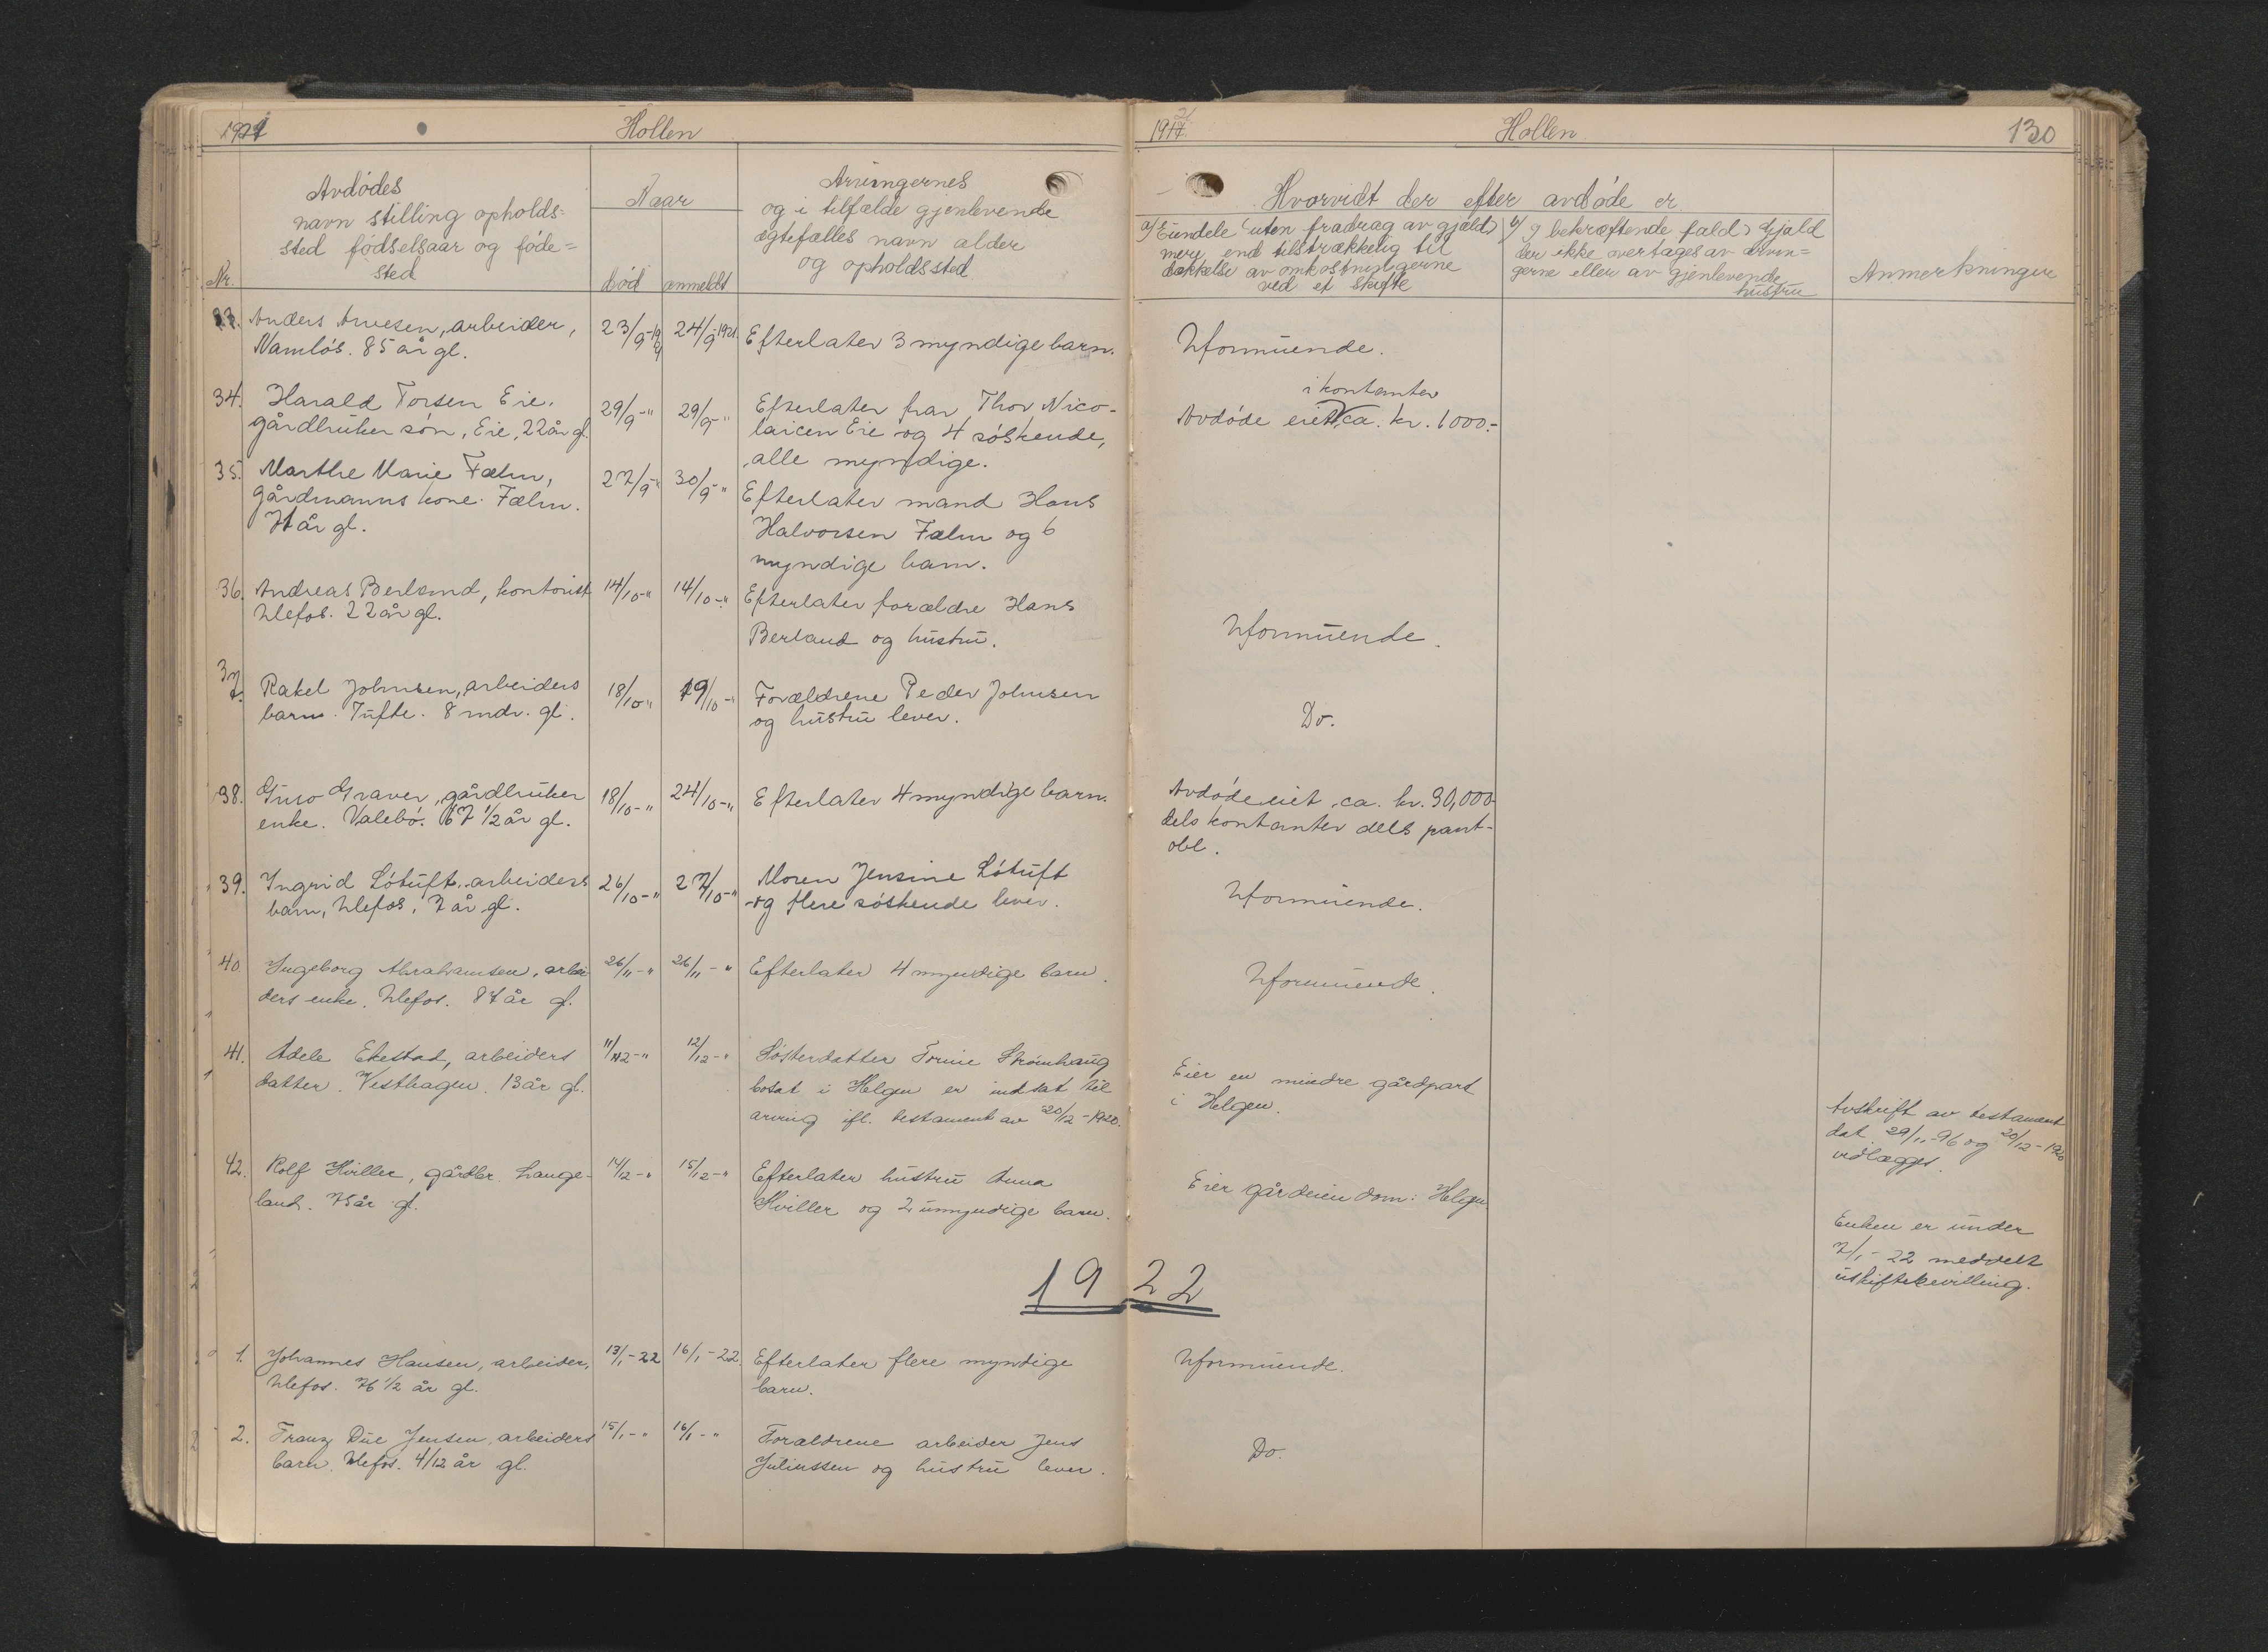 1921 Hollen
Nr.
Avdødes
navn stilling opholds=
sted fødselsaar og føde=
sted
Naar
død anmeldt
Arvingernes
og i tilfælde gjenlevende
ægtefælles navn alder
og opholdssted
33. Anders Arvesen, arbeider, 23/9-19 24/9-1921. Efterlater 3 myndige barn.
Namløs. 85 år gl.
34. Harald Torsen Eie. 29/9-" 29/9-" Efterlater far Thor Nico-
gårdbruker søn, Eie, 22 år gl. laicen Eie og 4 søskende,
alle myndige.
35. Marthe Marie Fælm, 27/9-" 30/9-" Efterlater mand Hans
gårdmanns kone. Fælm. Halvorsen Fælm og 6
71 år gl. myndige barn.
36. Andreas Berland, kontorist 14/10-" 14/10-" Efterlater forældre Hans
Ulefos. 22 år gl. Berland og hustru.
37. Rakel Johnsen, arbeiders 18/10-" 19/10-" Forældrene Peder Johnsen
barn. Tufte. 8 mdr. gl. og hustru lever.
38. Guro Graver, gårdbruker 18/10-" 24/10-" Efterlater 4 myndige barn.
enke. Valebø. 67 1/2 år gl.
39. Ingrid Løtuft. arbeiders 26/10-" 27/10-" Moren Jensine Løtuft
barn, Ulefos, 7 år gl. og flere søskende lever.
40. Ingeborg Abrahamsen, arbei 26/11-" 26/11-" Efterlater 4 myndige barn.
ders enke. Ulefos. 87 år gl.
41. Adele Ekestad, arbeiders 11/12-" 12/12-" Søsterdatter Strømhaug
datter. Vesthagen. 13 år gl. bosat i Helgen er indsat til
arving ifl. testament av 20/12-1920.
42. Rolf Hviller, gårdbr. Lange- 14/12-" 15/12-" Efterlater hustru Anna
land. 75 år gl. Hviller og 2 umyndige barn.
1922
1. Johannes Hansen, arbeider, 13/1-22 16/1-22 Efterlater flere myndige
Ulefos. 76 1/2 år gl. barn.
2. Franz Due Jensen, arbeiders 15/1-" 16/1-" Forældrene arbeider Jens
barn. Ulefos. 4/12 år gl. Juliussen og hustru lever.
1917 2 Hollen 130
Hvorvidt der efter avdøde er
a) Eiendele (uten fradrag av gjæld)
mere end tilstrækkelig til
dækkelse av omkostningerne
ved et skifte
b) I bekræftende fald Gjæld
der ikke overtages av arvin=
gerne eller av gjenlevende
hustru
Anmerkninger
Uformuende.
i kontanter
Avdøde eiet ca. kr. 1000.-
Uformuende.
Do.
Avdøde eiet ca. kr. 30,000
dels kontanter dels pant-
obl.
Uformuende.
Uformuende.
Eier en mindre gårdpart
i Helgen.
Avskrift av testament
dat. 29/11-96 og 20/12-1920
vedlægges.
Eier gårdeiendom: Helgen.
Enken er under
7/1-22 meddelt
uskiftebevilling.
Uformuende.
Do.